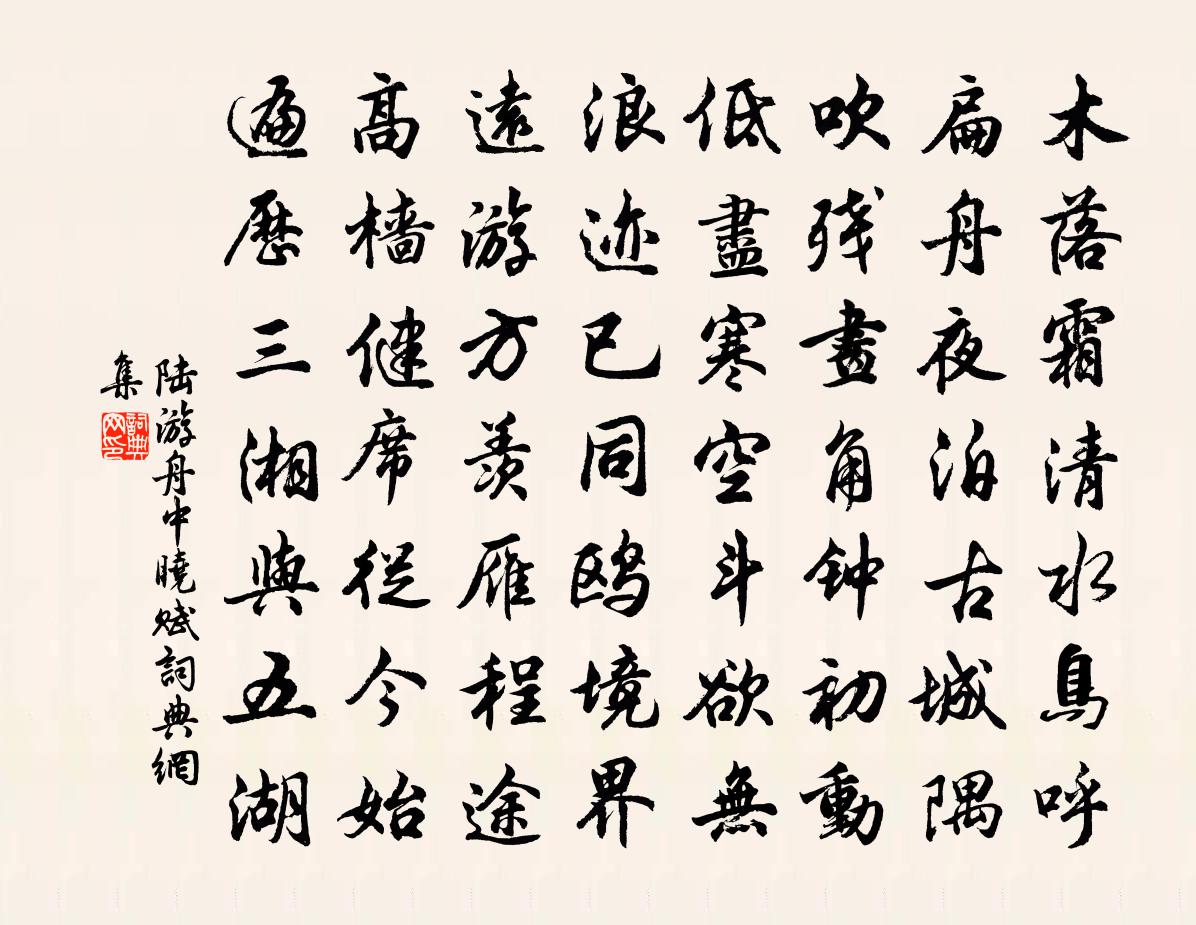 木落霜清水鳥呼
扁舟夜泊古城隅
吹残畫角钟初動
低盡寒空斗欲無
浪迹已同鸥境界
遠游方羨雁程途
高檣健席從今始
遍歷三湘與五湖
陆游舟中曉赋詞典網
集
詞典
网印